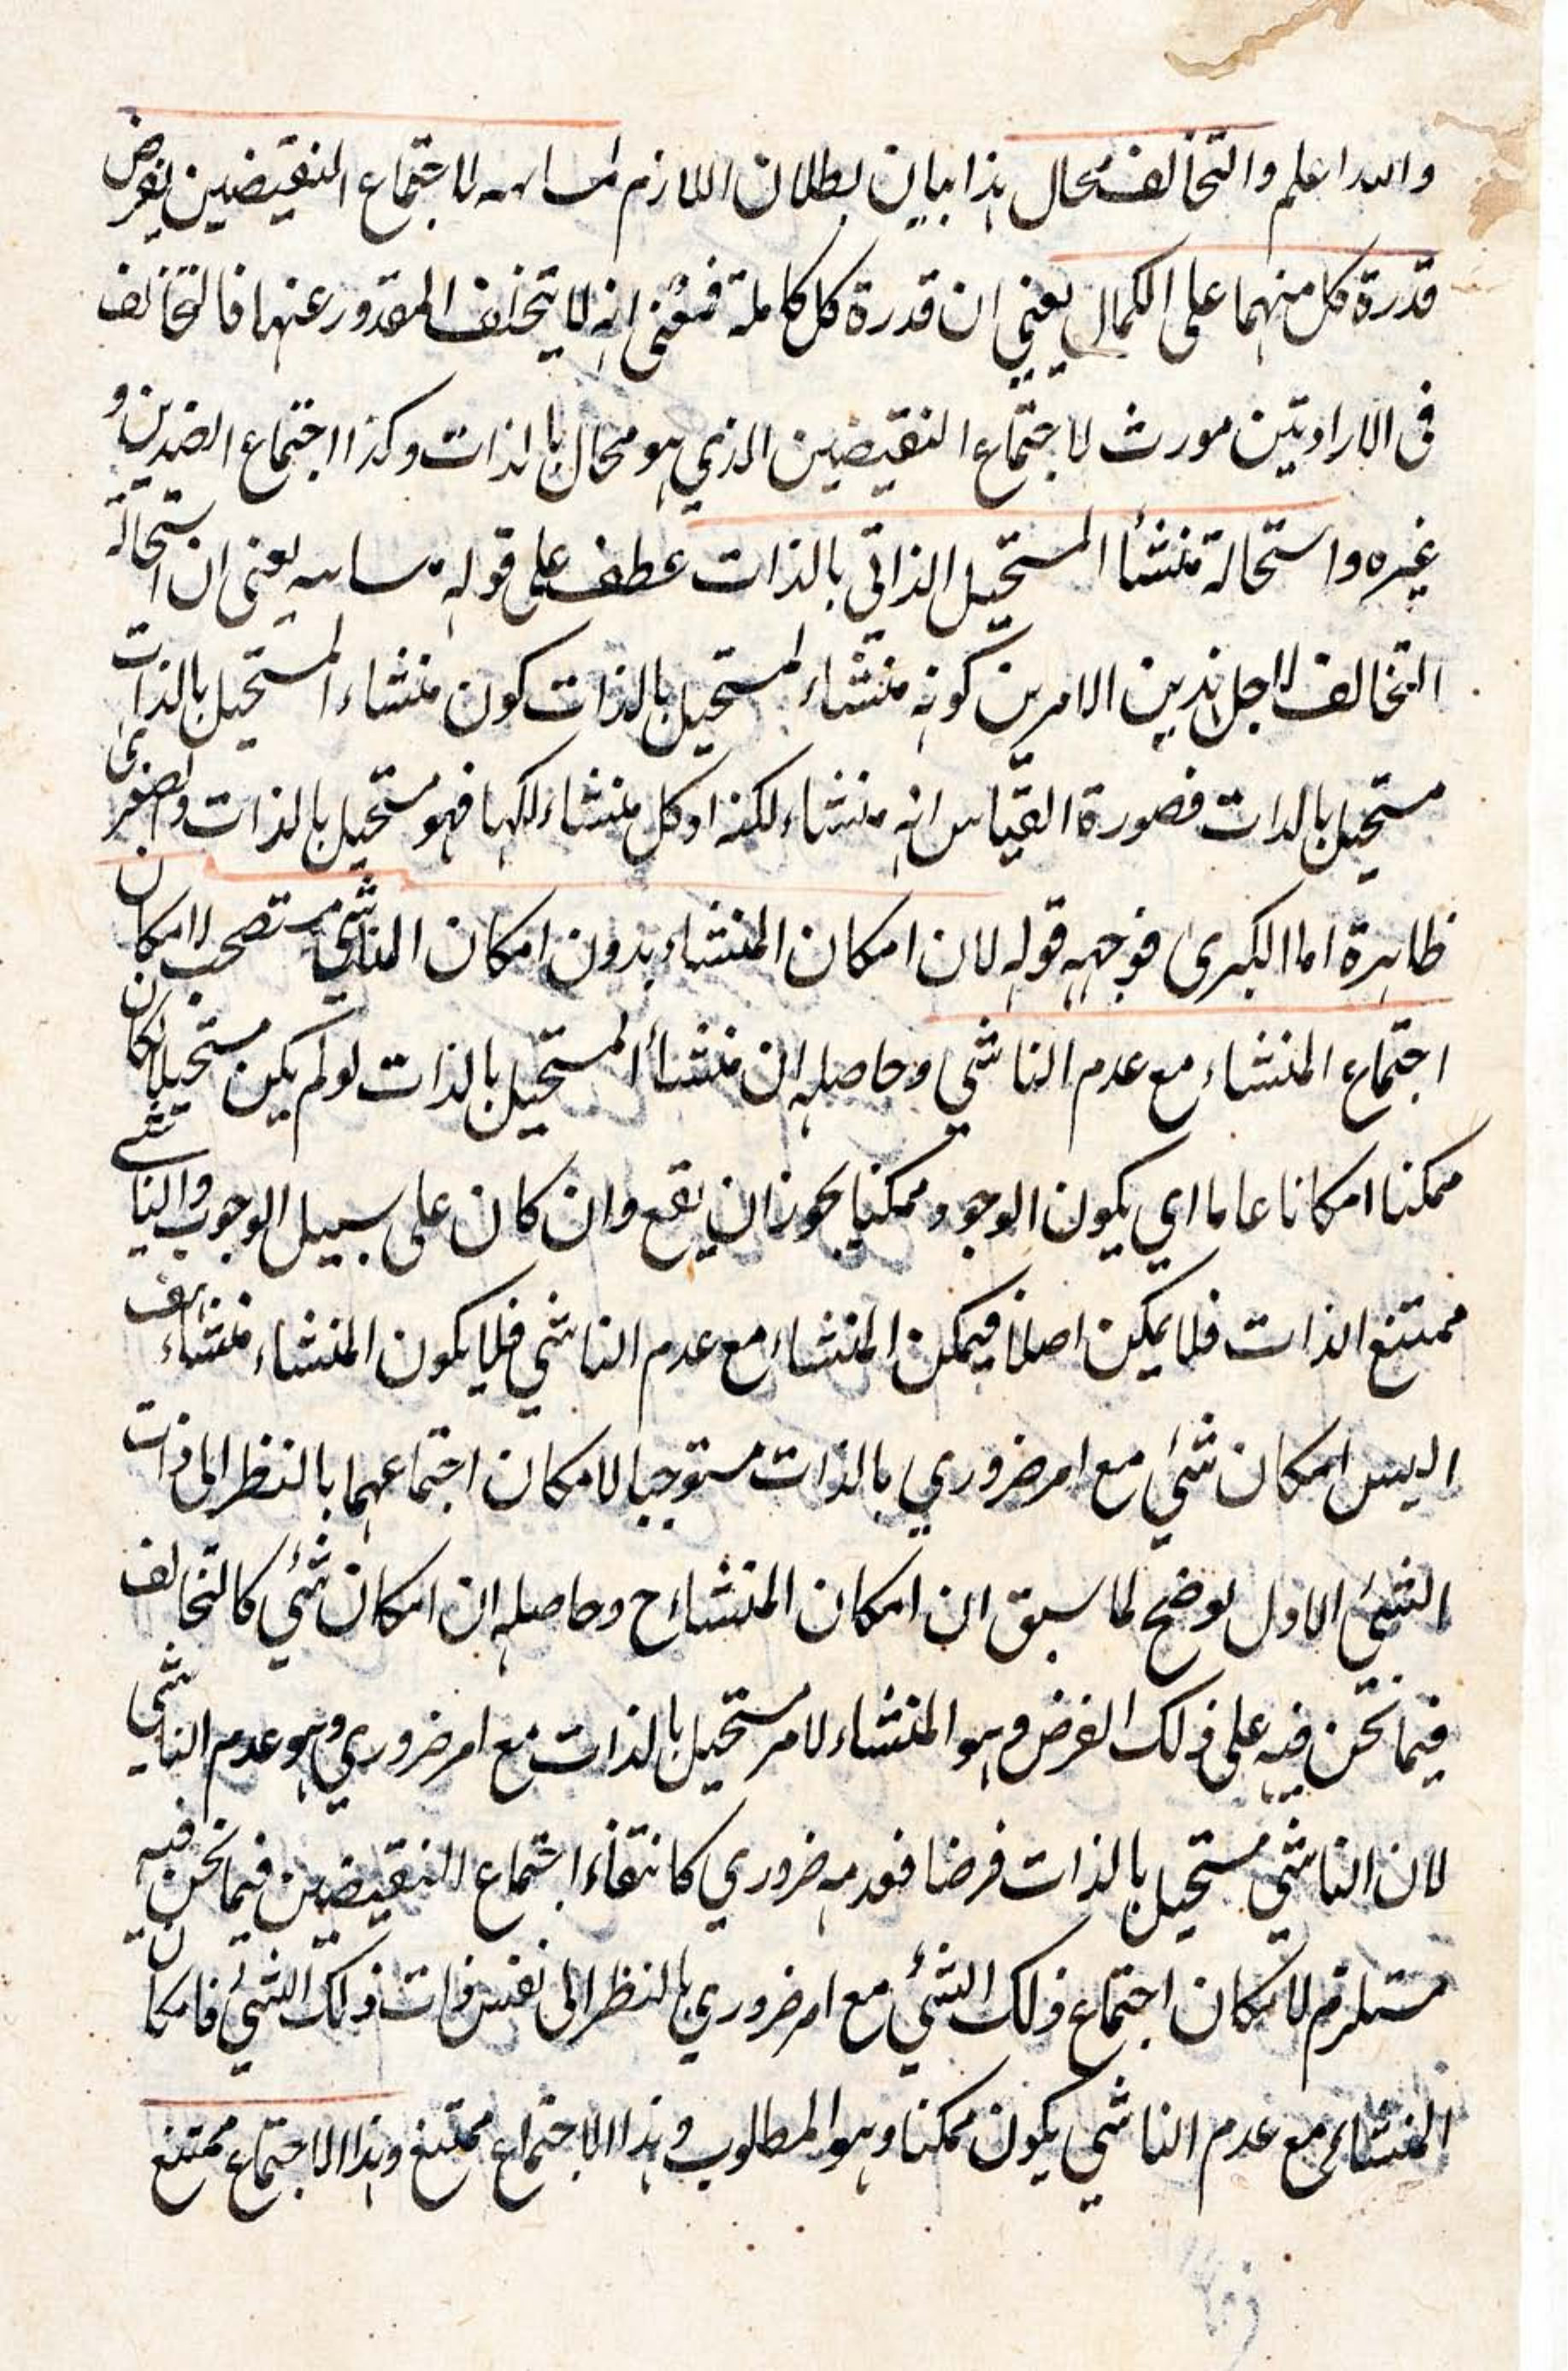 والله اعلم والتخالف محال هذا بيان بطلان اللازم لاجتماع النقيضين بفرض
قدرة كل منهما على الكمال يعني ان قدرة كل كاملة فمعنى انه لا يتخلف المقدور عنهما فالتخالف
فى الارادتين مورث لاجتماع النقيضين الذي هو محال بالذات وكذا اجتماع الضدين و
غيره واستحالة منشأ المستحيل الذاتي بالذات عطف على قوله يعنى ان استحالة
التخالف لاجل هذين الامرين كونه منشاء لمستحيل بالذات كون منشاء المستحيل بالذات
مستحيل بالذات فصورة القياس انه منشاء لكذا وكل منشاء لكذا فهو مستحيل بالذات والصغرى
ظاهرة اما الكبرى فوجهه قوله لان امكان المنشاء بدون امكان الناشي مستصحب لامكان
اجتماع المنشاء مع عدم الناشي وحاصله ان منشأ المستحيل بالذات لو لم يكن مستحيلا لكان
ممكنا امكانا عاما اي يكون الوجود ممكنا يجوز ان يقع وان كان على سبيل الوجوب والناشي
ممتنع الذات فلا يمكن اصلا فيمكن المنشاء مع عدم الناشي فلا يكون المنشاء منشاء هف
اليس امكان شئ مع امر ضروري بالذات مستوجبا لامكان اجتماعهما بالنظر الى ذات
الشئ الاول توضيح لما سبق ان امكان المنشاء اح وحاصله ان امكان شئ كالتخالف
فيما نحن فيه على ذلك الفرض وهو المنشاء لامر مستحيل بالذات مع امر ضروري وهو عدم الناشي
لان الناشي مستحيل بالذات فرضا فعدمه ضروري كانتفاء اجتماع النقيضين فيما نحن فيه
مستلزم لامكان اجتماع ذلك الشئ مع امر ضروري بالنظر الى نفس ذات ذلك الشئ فامكان
المنشاء مع عدم الناشي يكون ممكنا وهو المطلوب وهذا الاجتماع ممتنع وهذا الاجتماع ممتنع